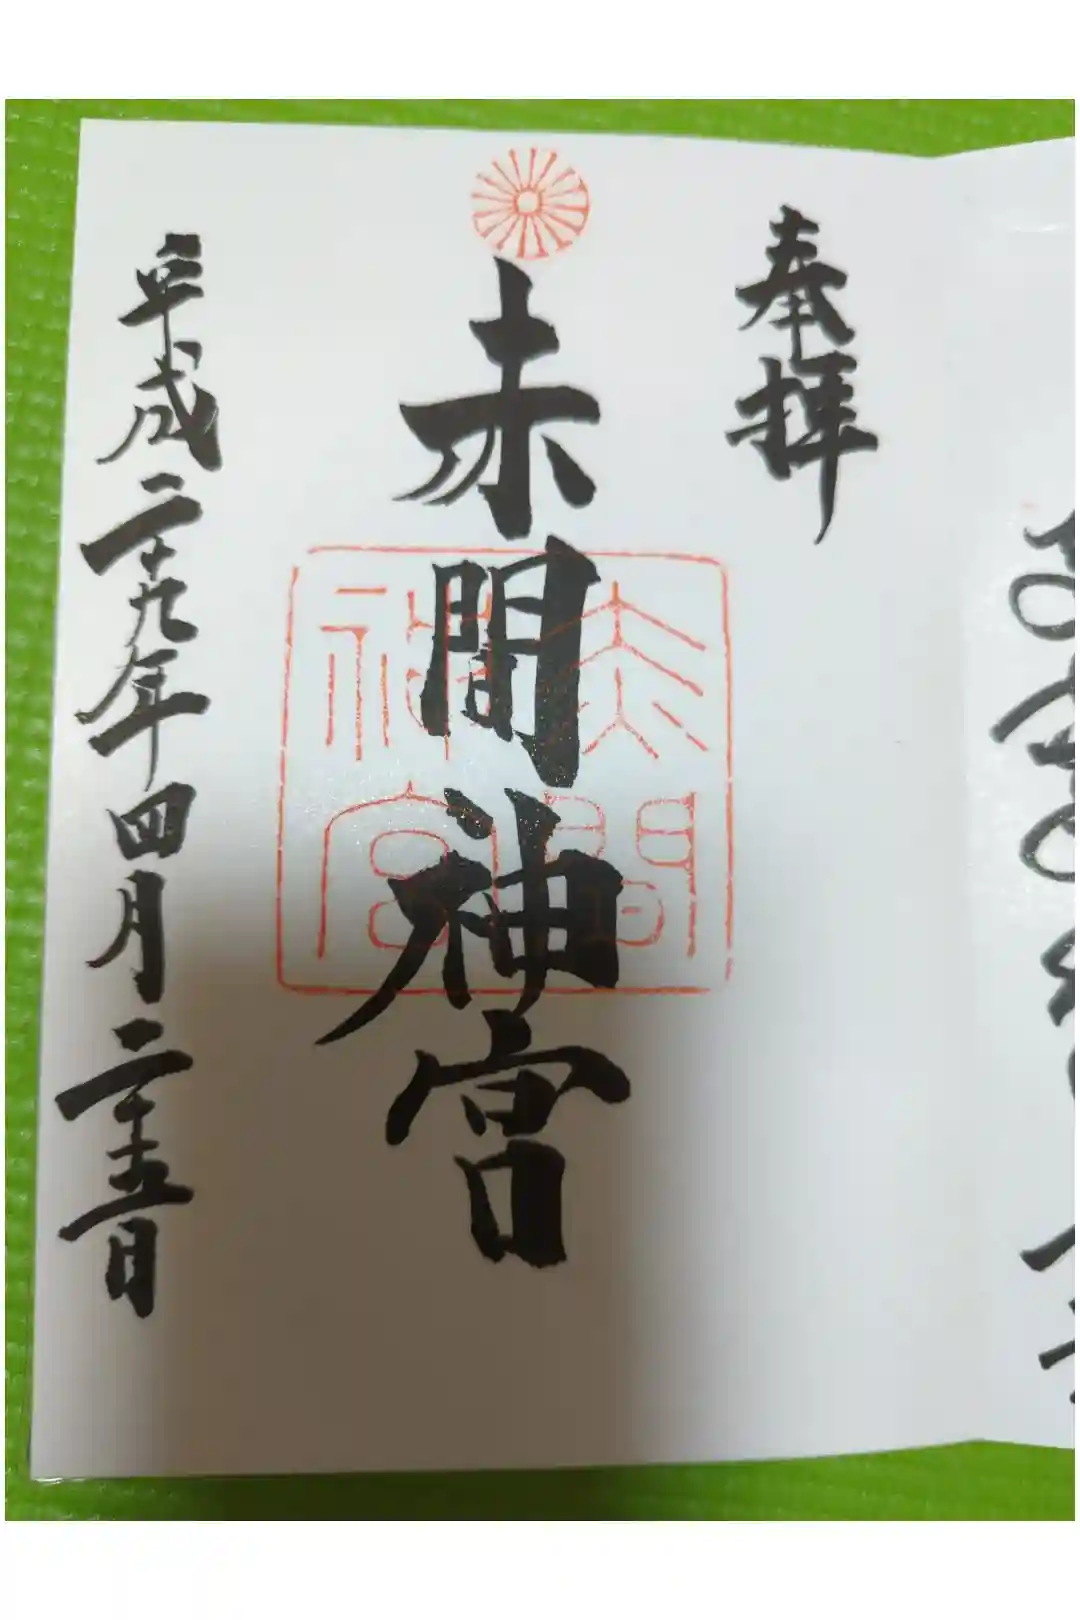 奉拝
赤間神宮
赤間
神宮
平成二十九年四月二十五日